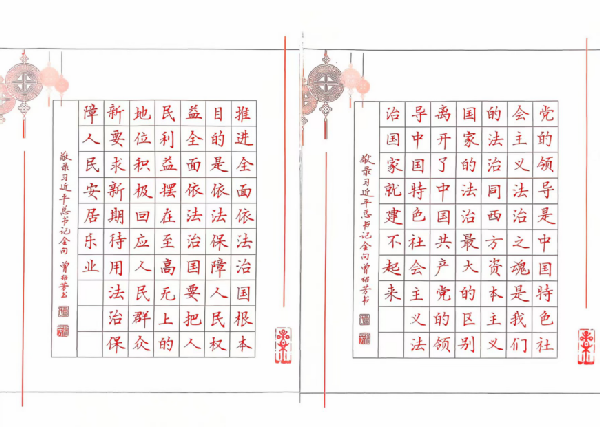 推进全面依法治国根本
目的是依法保障人民权
益全面依法治国要把人
民利益摆在至高无上的
地位积极回应人民群众
新要求新期待用法治保
障人民安居乐业
敬录习近平总书记金句
党的领导是中国特色社
会主义法治之魂是我们
的法治同西方资本主义
国家的法治最大的区别
离开了中国共产党的领
导中国特色社会主义法
治国家就建不起来
敬录习近平总书记金句